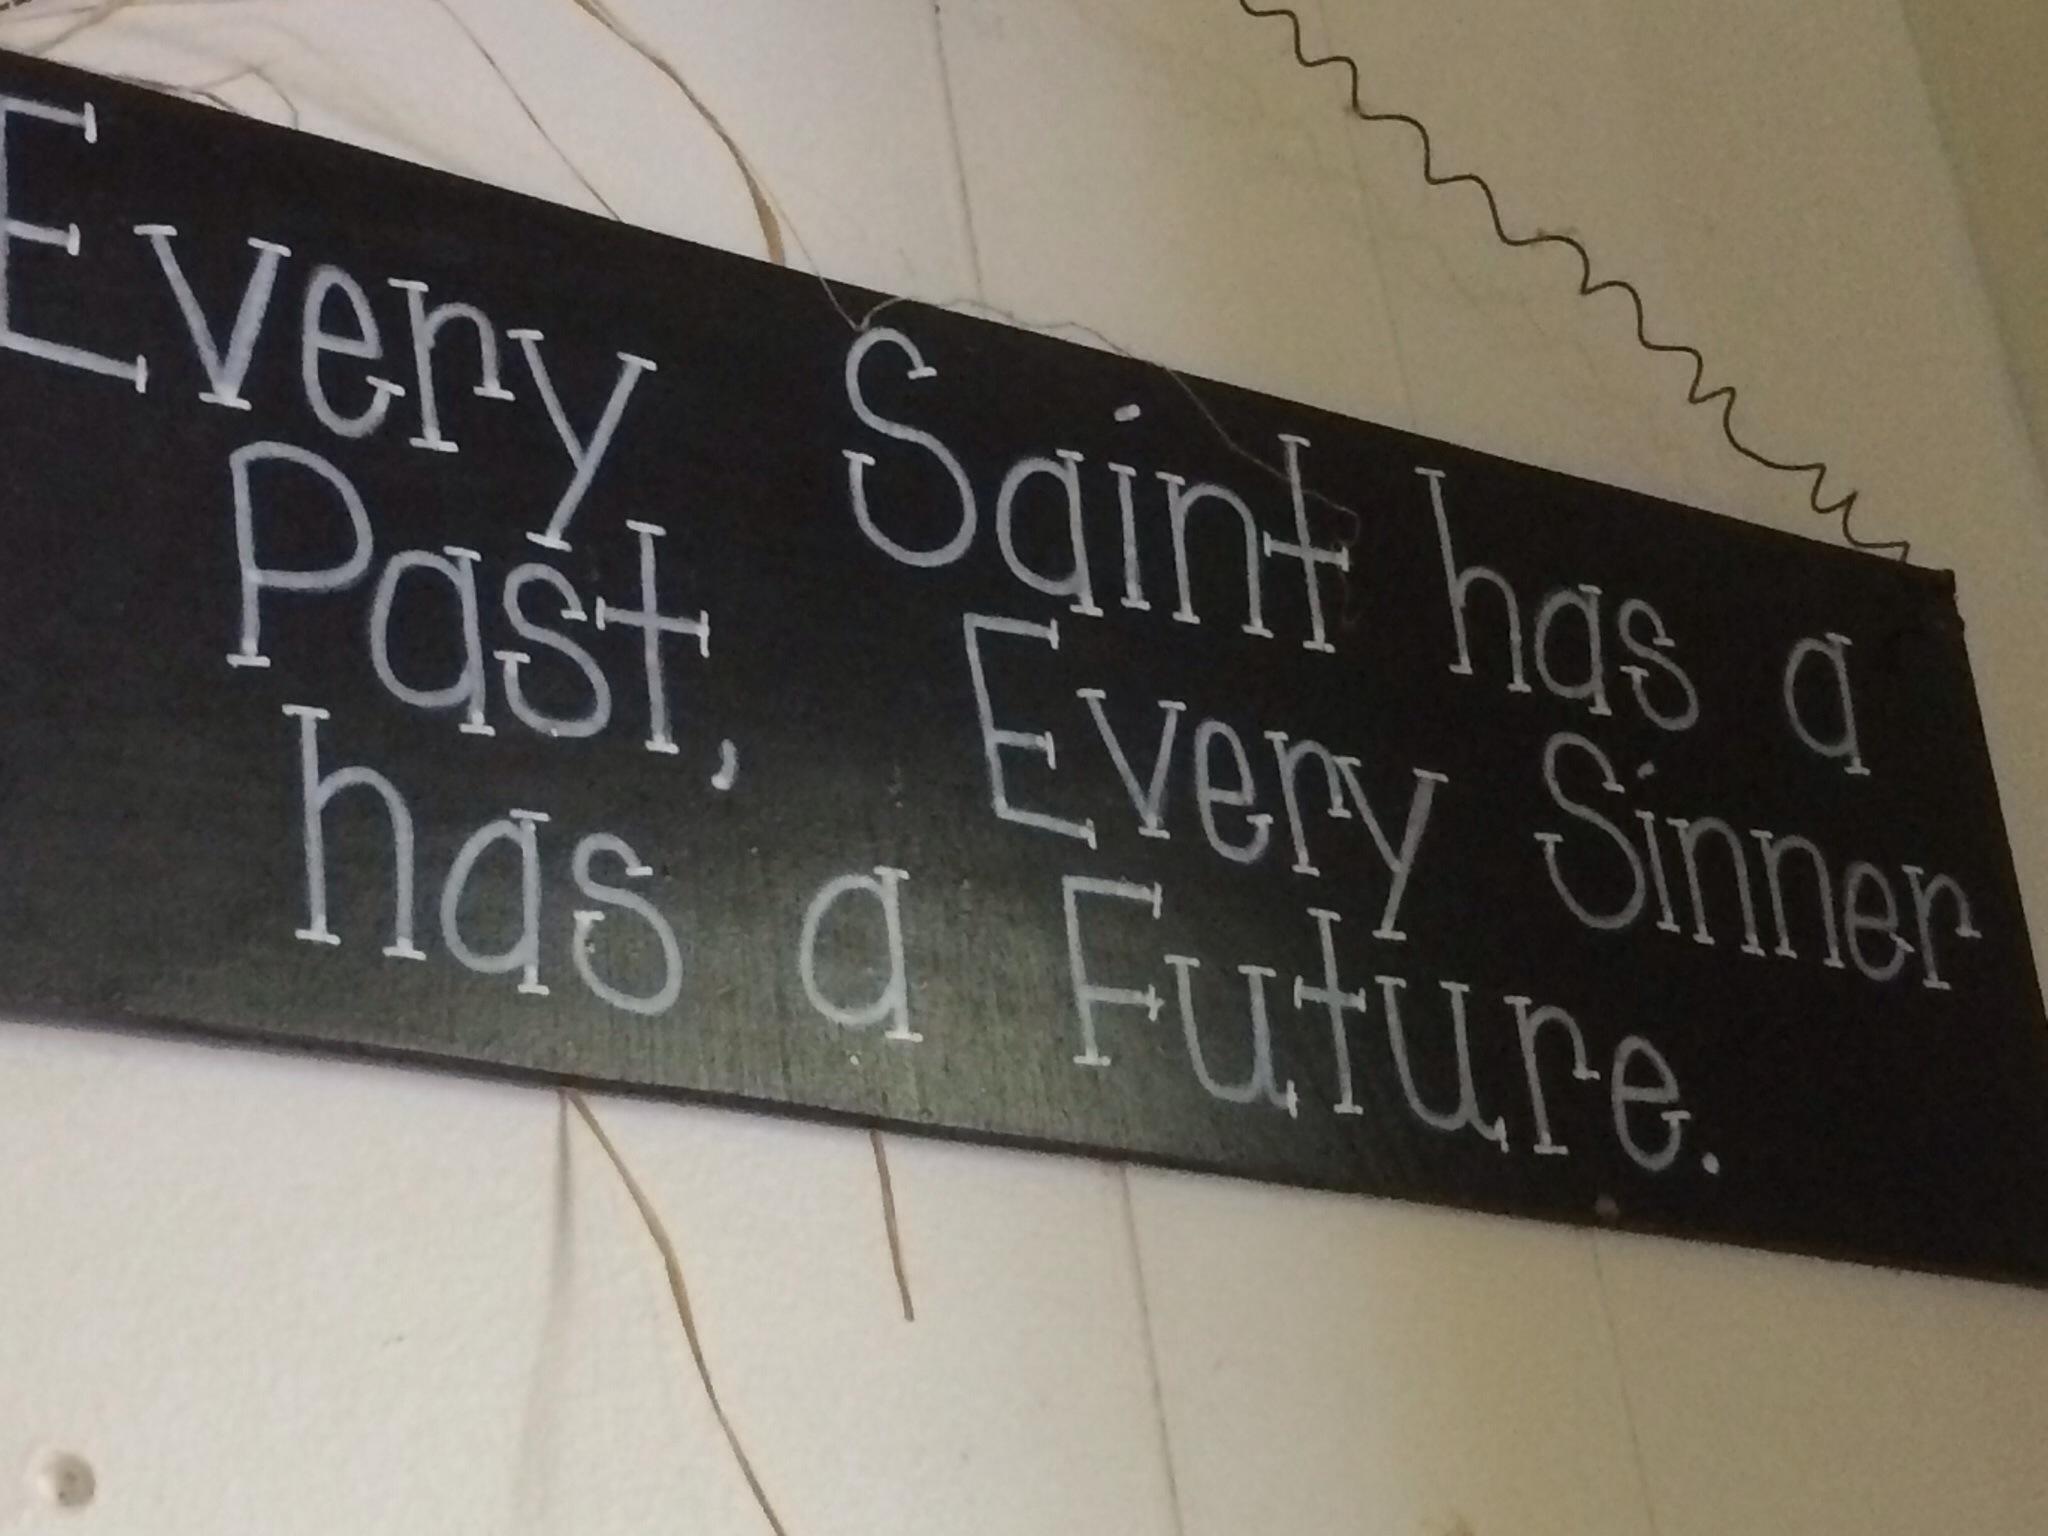 Every Saint has a
Past, Every Sinner
has a Future.